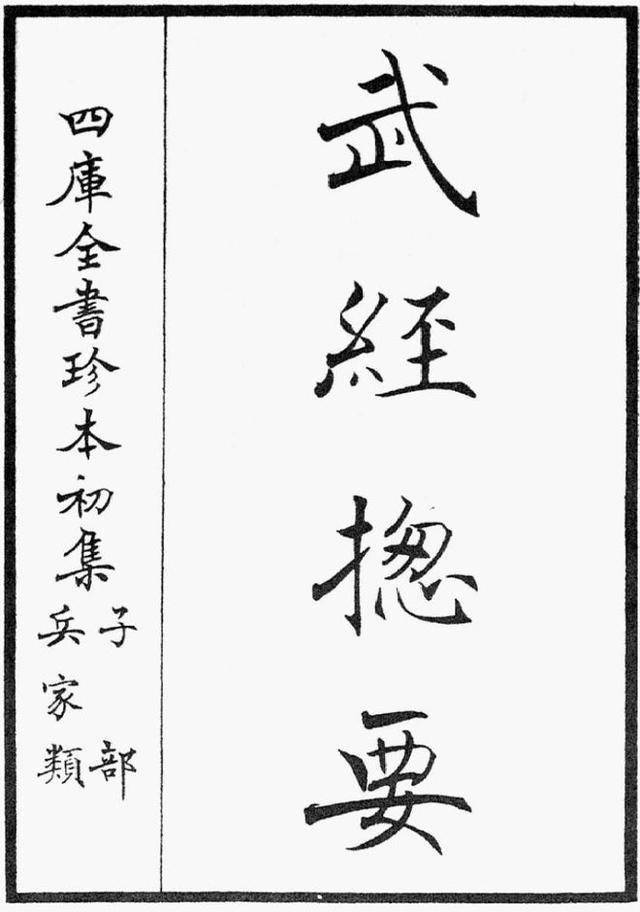 武經揔要
四庫全書珍本初集
子部
兵家類